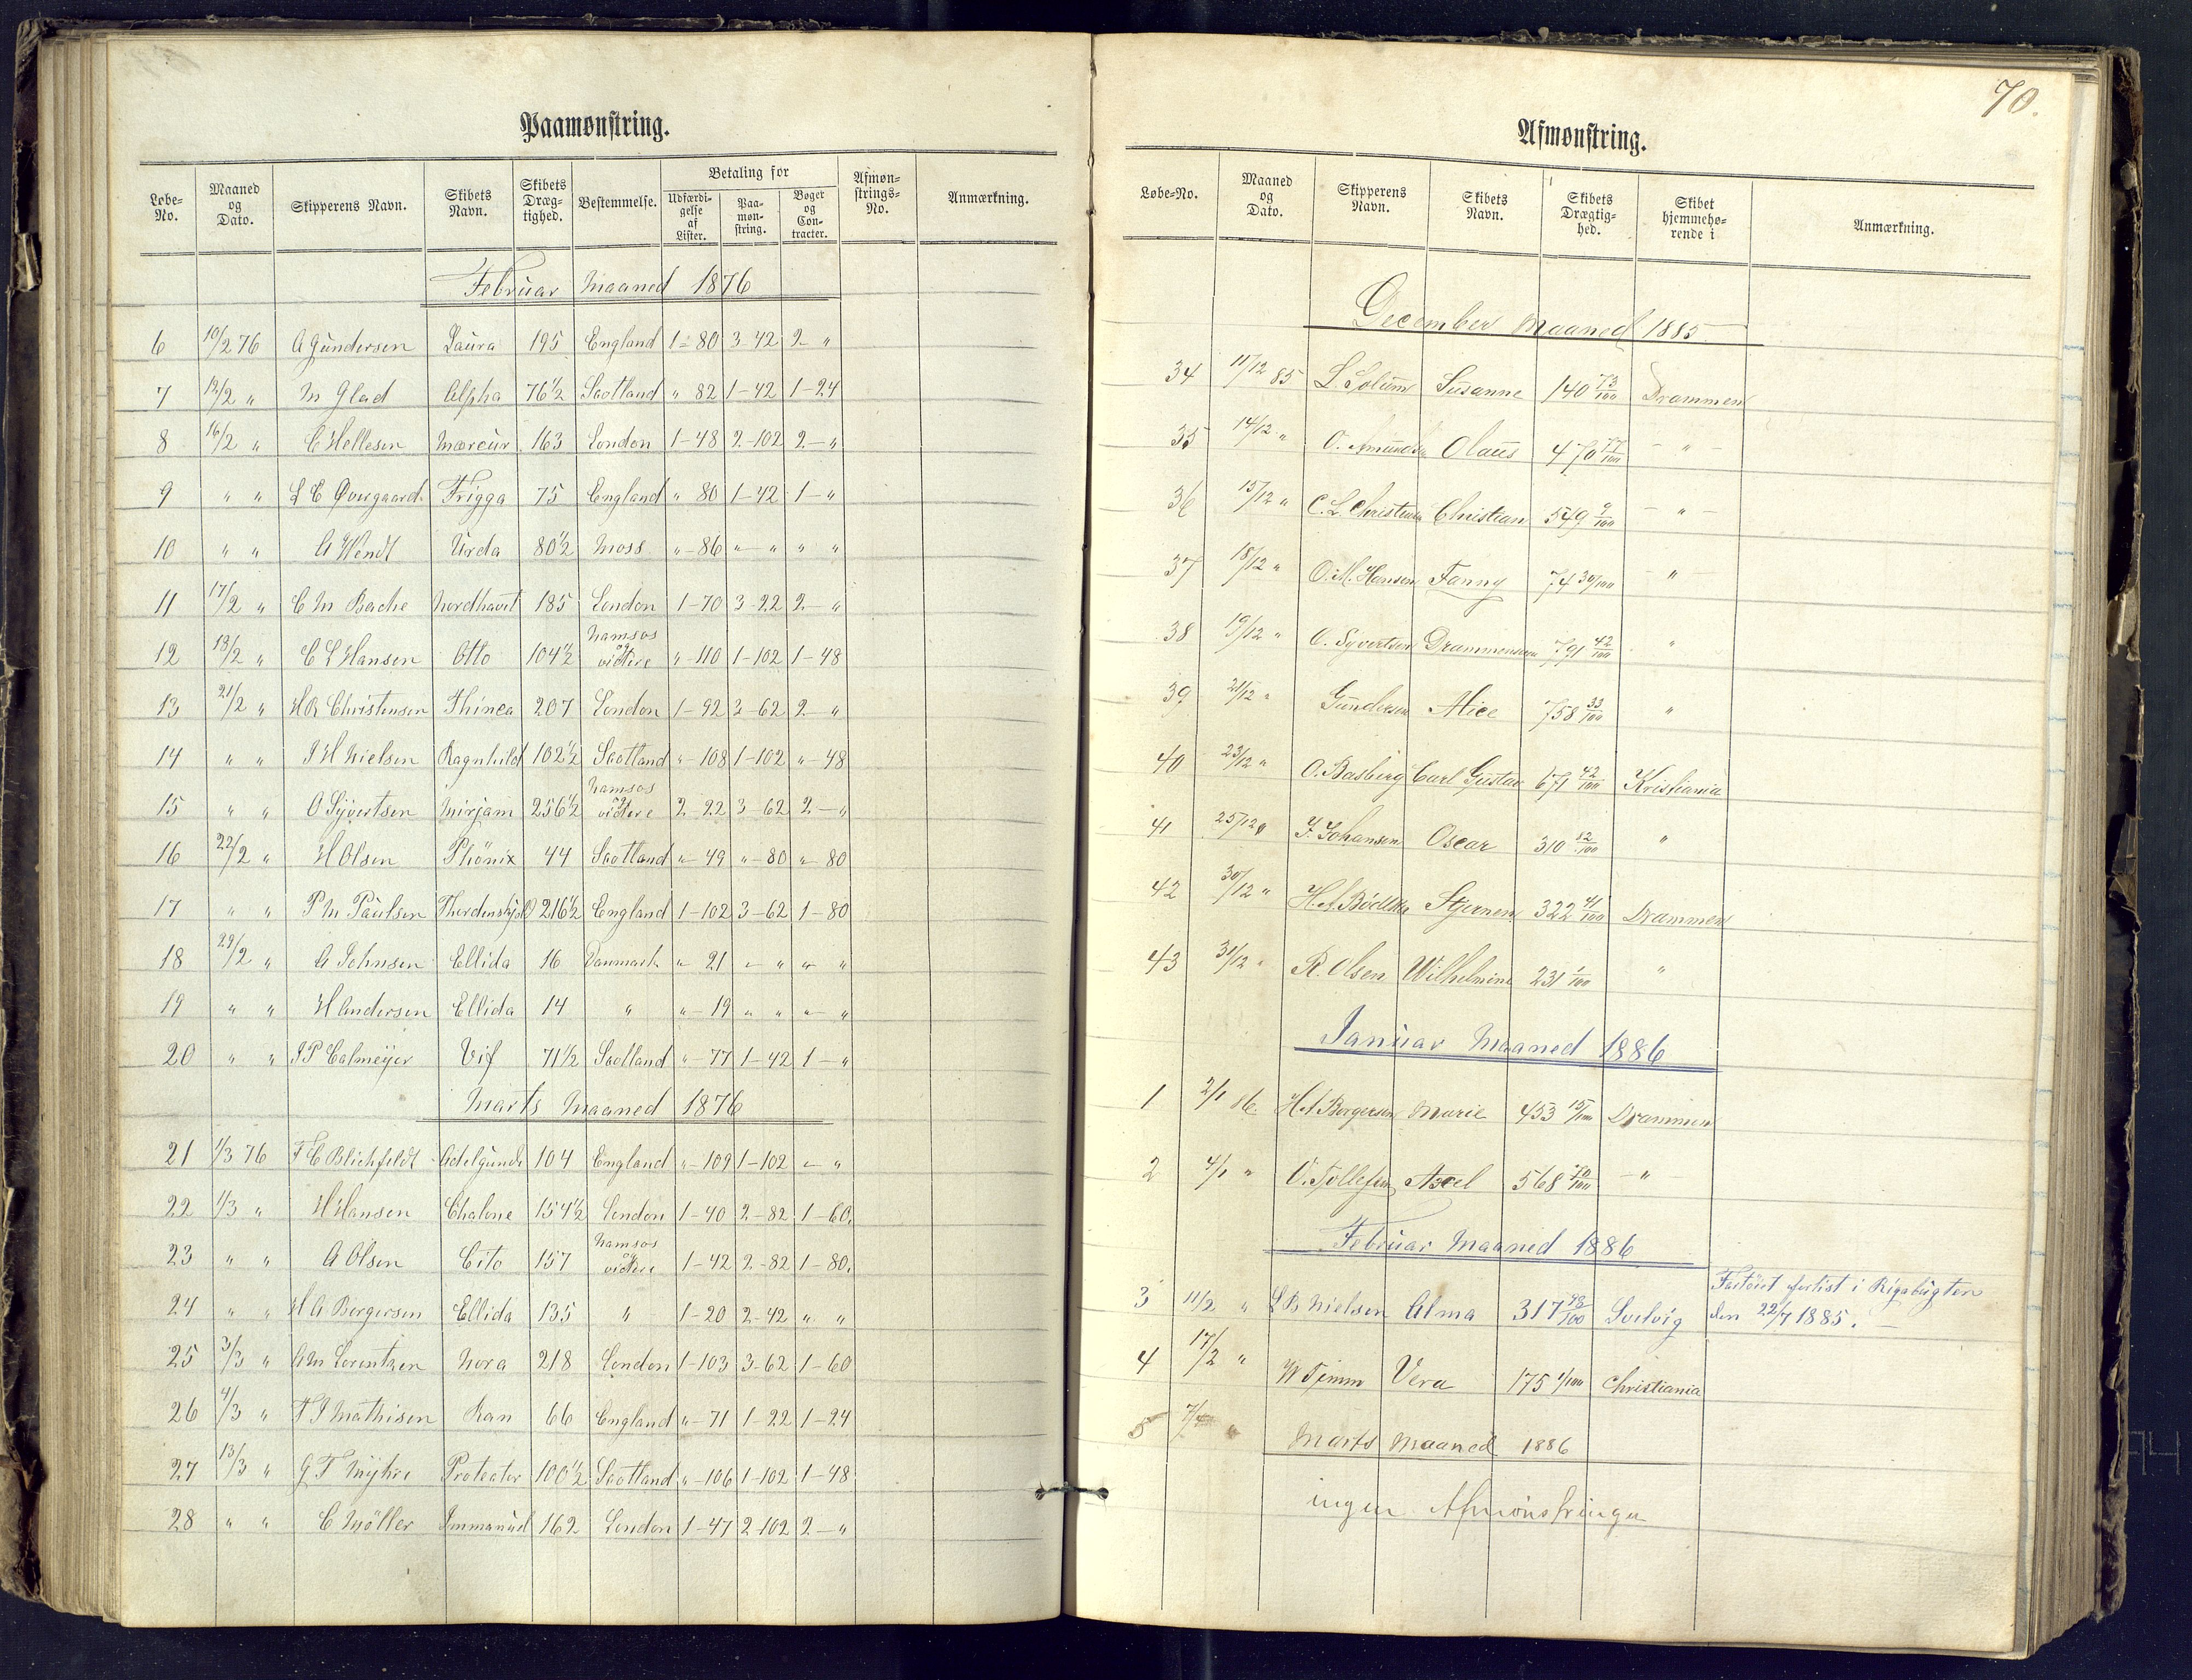 Paamønstring.
Løbe-No. Maaned og Dato. Skipperens Navn. Skibets Navn. Skibets Dræg-tighed. Bestemmelse. Betaling for Udfærdi-gelse af Lister. Paa-møn-string. Bøger og Con-tracter. Afmøn-strings-No. Anmærkning.
Februar Maaned 1876
6 10/2 76 A Gundersen Laura 195 England 1-80 3-42 2 "
7 12/2 " M Glad Alpha 76 1/2 Scotland " 82 1-42 1-24
8 16/2 " C Hellesen Mercur 163 London 1-48 2-102 2-"
9 " " L C Øvergaard Frigga 75 England " 80 1-42 1-"
10 " " A Wendt Urda 80 1/2 Moss "-86 "-" " "
11 17/2 " C M Bache Nordhavet 185 London 1-70 3-22 2-"
12 18/2 " C L Hansen Otto 104 1/2 Namsos og videre "-110 1-102 1-48
13 21/2 " H R Christensen Thinca 207 London 1-92 3-62 2-"
14 " " J H Nielsen Ragnhild 102 1/2 Scotland "-108 1-102 "-48
15 " " O Syvertsen Mirjam 256 1/2 Namsos og videre 2-22 3-62 2-"
16 22/2 " H Olsen Phønix 44 Scotland "-49 "-80 "-80
17 " " P M Paulsen Thordenskjold 216 1/2 England 1-102 3-62 1-80
18 29/2 " A Johnsen Ellida 16 Danmark "-21 - " "- "
19 " " H Andersen Ellida 14 " "-19 " " "- "
20 " " J P Calmeyer Vif 71 1/2 Scotland "-77 1-42 1-"
Marts Maaned 1876
21 1/3 76 F C Blichfeldt Adelgunde 104 England "-109 1-102 - "
22 1/3 " H Hansen Chalone 154 1/2 London 1-40 2-82 1-60.
23 " " A Olsen Cito 157 Namsos og videre 1-42 2-82 1-80.
24 " " H A Borgersen Ellida 135 " 1-20 2-42 " "
25 3/3 " A M Lorentzen Nora 218 London 1-103 3-62 1-60
26 4/3 " F J Mathisen Ran 66 England "-71 1-22 1-24
27 13/3 " G F Myhre Protector 100 1/2 Scotland "-106 1-102 1-48
28 " " C Møller Immanuel 162 London 1-47 2-102 2-"
70.
Afmønstring.
Løbe-No. Maaned og Dato. Skipperens Navn. Skibets Navn. Skibets Drægtig-hed. Skibet hjemmehø-rende i Anmærkning.
December Maaned 1885
34 11/12 85 L. Solum Susanne 140 73/100 Drammen
35 14/12 " O. Amundsen Olaus 470 77/100 - " -
36 15/12 " C. L. Christensen Christian 549 9/100 - " -
37 18/12 " O. M. Hansen Fanny 74 30/100 - "
38 19/12 " O. Syvertsen Drammenseren 791 42/100 "
39 21/12 " Gundersen Alice 758 33/100 "
40 23/12 " O. Basberg Carl Gustav 671 42/100 Kristiania
41 25/12 " F. Johansen Oscar 310 82/100 "
42 30/12 " H. A. Bødtker Stjernen 322 41/100 Drammen
43 31/12 " R. Olsen Wilhelmine 231 1/100 "
Januar Maaned 1886
1 2/1 86. H A Borgersen Marie 453 15/100 Drammen
2 4/1 " O. Tollefsen Axel 568 70/100 - "
Februar Maaned 1886
3 11/2 " L B Nielsen Alma 317 48/100 Svelvig Fartöiet forlist i Rigabugten den 22/7 1885. -
4 17/2 " W Timm Vera 175 1/100 Christiania
5 7/4 "
Marts Maaned 1886
ingen Afmønstringer